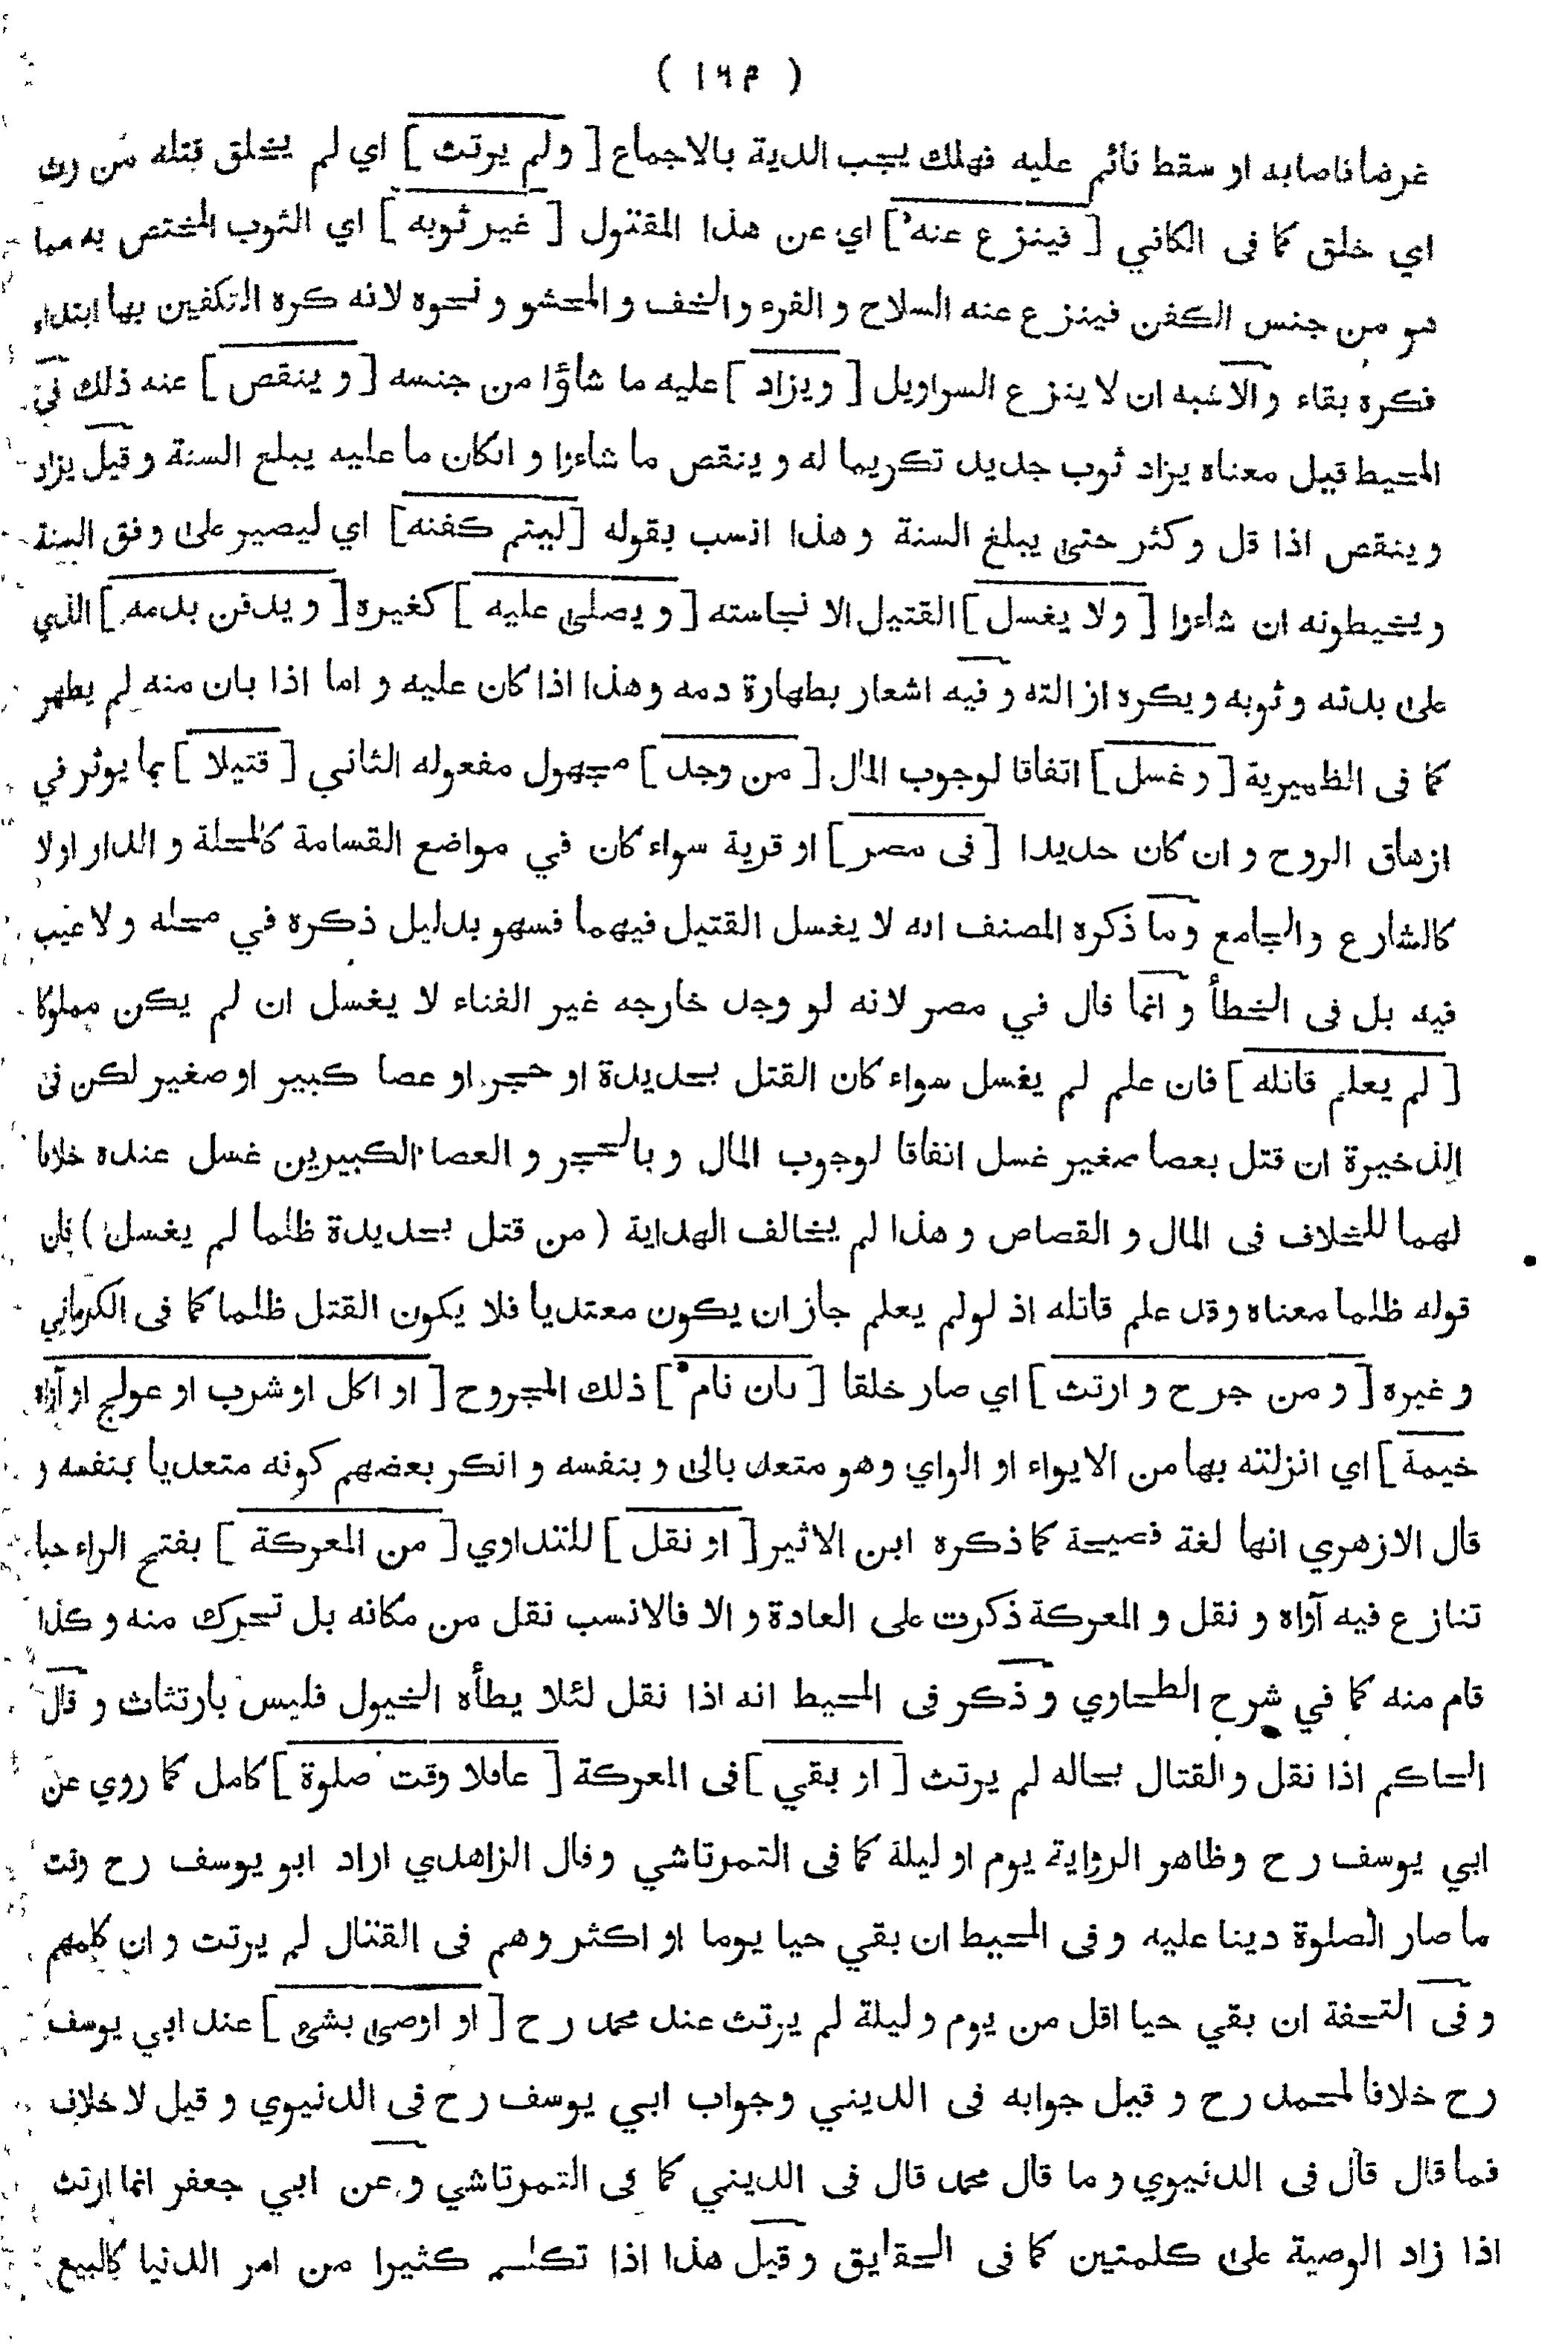 ( ١٦٣ )
غرضا فاصابه او سقط نائم عليه فهلك يجب الدية بالاجماع [ ولم يرتث ] اي لم يخلق قتله من رث
اي خلق كما فى الكافي [ فينزع عنه ] اي عن هذا المقتول [ غير ثوبه ] اي الثوب المختص به مما
هو من جنس الكفن فينزع عنه السلاح و الفرء و الخف و المحشو و نحوه لانه كره التكفين بها ابتداء
فكره بقاء و الاشبه ان لا ينزع السراويل [ ويزاد ] عليه ما شاؤا من جنسه [ و ينقص ] عنه ذلك فى
المحيط قيل معناه يزاد ثوب جديد تكريما له و ينقص ما شاءوا و انكان ما عليه يبلع السنة و قيل يزاد
و ينقص اذا قل و كثر حتى يبلغ السنة و هذا انسب بقوله [ ليتم كفنه ] اي ليصير على وفق السنة
و يخيطونه ان شاءوا [ ولا يغسل ] القتيل الا نجاسته [ و يصلى عليه ] كغيره [ و يدفن بدمه ] الذي
على بدنه و ثوبه و يكره ازالته و فيه اشعار بطهارة دمه وهذا اذا كان عليه و اما اذا بان منه لم يطهر
كما فى الظهيرية [ و غسل ] اتفاقا لوجوب المال [ من وجد ] مجهول مفعوله الثاني [ قتيلا ] بما يوثر في
ازهاق الروح و ان كان حديدا [ فى مصر ] او قرية سواء كان في مواضع القسامة كالمحلة و الدار اولا
كالشارع والجامع وما ذكره المصنف انه لا يغسل القتيل فيهما فسهو بدليل ذكره في محله و لا عيب
فيه بل فى الخطأ و انما قال في مصر لانه لو وجد خارجه غير الفناء لا يغسل ان لم يكن مملوكا
[ لم يعلم قاتله ] فان علم لم يغسل سواء كان القتل بحديدة او حجر او عصا كبير او صغير لكن فى
الذخيرة ان قتل بعصا صغير غسل اتفاقا لوجوب المال و بالحجر و العصا الكبيرين غسل عنده خلافا
لهما للخلاف فى المال و القصاص و هذا لم يخالف الهداية ( من قتل بحديدة ظلما لم يغسل ) فان
قوله ظلما معناه وقد علم قاتله اذ لولم يعلم جاز ان يكون معتديا فلا يكون القتل ظلما كما فى الكرماني
و غيره [ و من جرح و ارتث ] اي صار خلقا [ بان نام ] ذلك المجروح [ او اكل او شرب او عولج او آواه
خيمة ] اي انزلته بها من الايواء او الواي وهو متعد بالى و بنفسه و انكر بعضهم كونه متعديا بنفسه و
قال الازهري انها لغة فصيحة كما ذكره ابن الاثير [ او نقل ] للتداوي [ من المعركة ] بفتح الراء حيا
تنازع فيه آواه و نقل و المعركة ذكرت على العادة و الا فالانسب نقل من مكانه بل تحرك منه و كذا
قام منه كما في شرح الطحاوي و ذكر فى المحيط انه اذا نقل لئلا يطأه الخيول فليس بارتثاث و قال
الحاكم اذا نقل والقتال بحاله لم يرتث [ او بقي ] فى المعركة [ عاقلا وقت صلوة ] كامل كما روي عن
ابي يوسف رح وظاهر الرواية يوم او ليلة كما فى التمرتاشي وقال الزاهدي اراد ابو يوسف رح وقت
ما صار الصلوة دينا عليه و فى المحيط ان بقي حيا يوما او اكثر وهم فى القتال لم يرتث و ان كلمهم
و فى التحفة ان بقي حيا اقل من يوم و ليلة لم يرتث عند محمد رح [ او اوصى بشئ ] عند ابي يوسف
رح خلافا لمحمد رح و قيل جوابه فى الديني وجواب ابي يوسف رح فى الدنيوي و قيل لا خلاف
فما قال قال فى الدنيوي و ما قال محمد قال فى الديني كما فى التمرتاشي و عن ابي جعفر انما ارتث
اذا زاد الوصية على كلمتين كما فى الحقايق و قيل هذا اذا تكلم كثيرا من امر الدنيا كالبيع